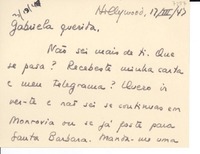 Hollywood, 17/III/47
Gabriela querida,
Não sei mais de ti. Que
se pasa? Recebeste minha carta
e meu telegrama? Quero ir
ver-te e não sei se continuas em
Monrovia ou se já foste para
Santa Barbara. Manda-me uma